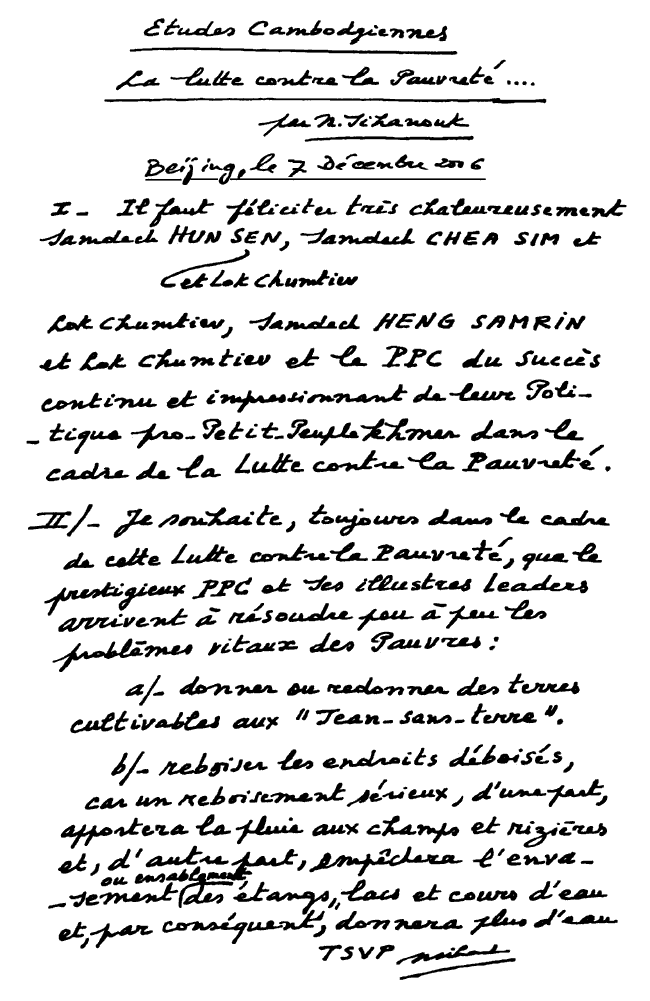 Etudes Cambodgiennes
La lutte contre la Pauvreté ....
par N. Sihanouk
Beijing, le 7 Décembre 2006
I - Il faut féliciter très chaleureusement
Samdech HUN SEN, Samdech CHEA SIM et
et Lok Chumtiev
Lok Chumtiev, Samdech HENG SAMRIN
et Lok Chumtiev et le PPC du Succès
continu et impressionnant de leur Poli-
-tique pro-Petit-Peuple khmer dans le
cadre de la Lutte contre la Pauvreté.
II/- Je souhaite, toujours dans le cadre
de cette Lutte contre la Pauvreté, que le
prestigieux PPC et ses illustres Leaders
arrivent à résoudre peu à peu les
problèmes vitaux des Pauvres :
a/- donner ou redonner des terres
cultivables aux "Jean-sans-terre".
b/- reboiser les endroits déboisés,
car un reboisement sérieux, d'une part,
apportera la pluie aux champs et rizières
et, d'autre part, empêchera l'enva-
ou ensablement
-sement des étangs, lacs et cours d'eau
et, par conséquent, donnera plus d'eau
TSVP